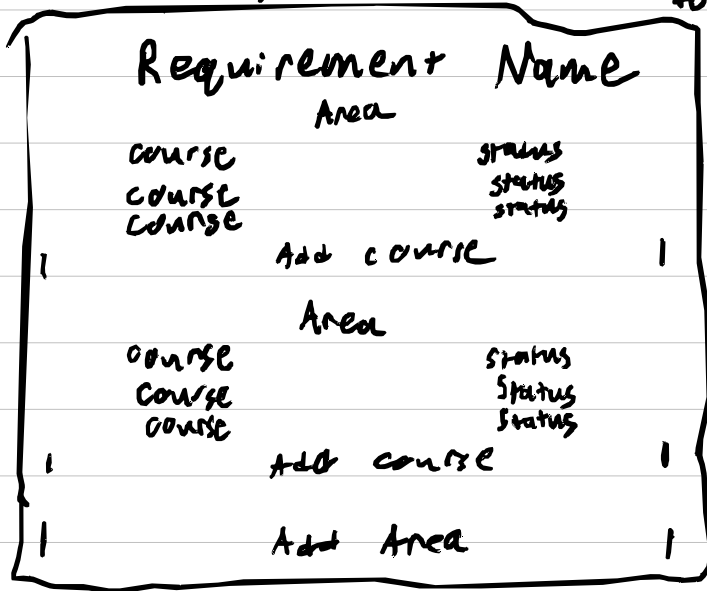 to
Requirement Name
Area
course status
course status
course status
Add course
Area
course status
course status
course status
Add course
Add Area